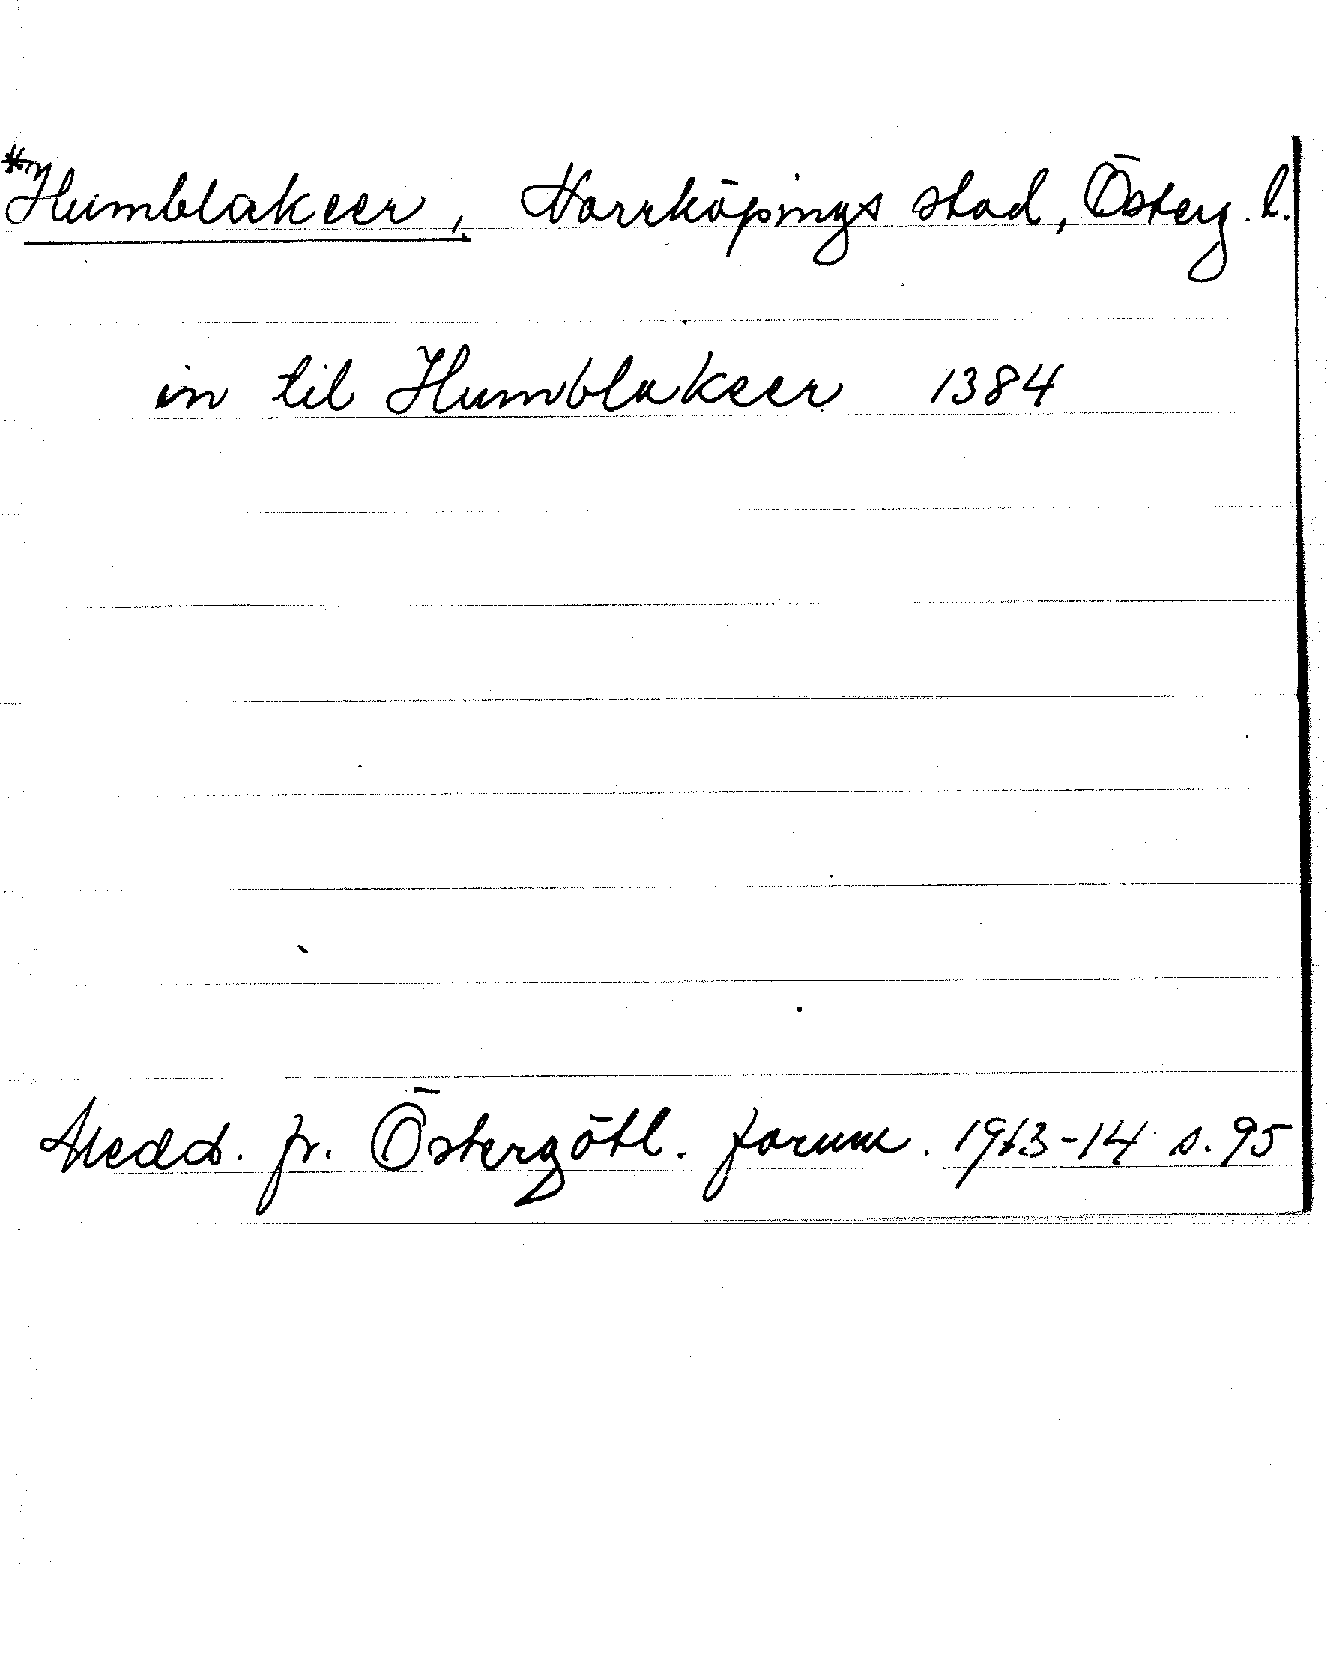 *Humblakeer, Norrköpings stad, Österg. l.
in til Humblakeer 1384
Medd. fr. Östergötl. fornm. 1913-14 s. 95